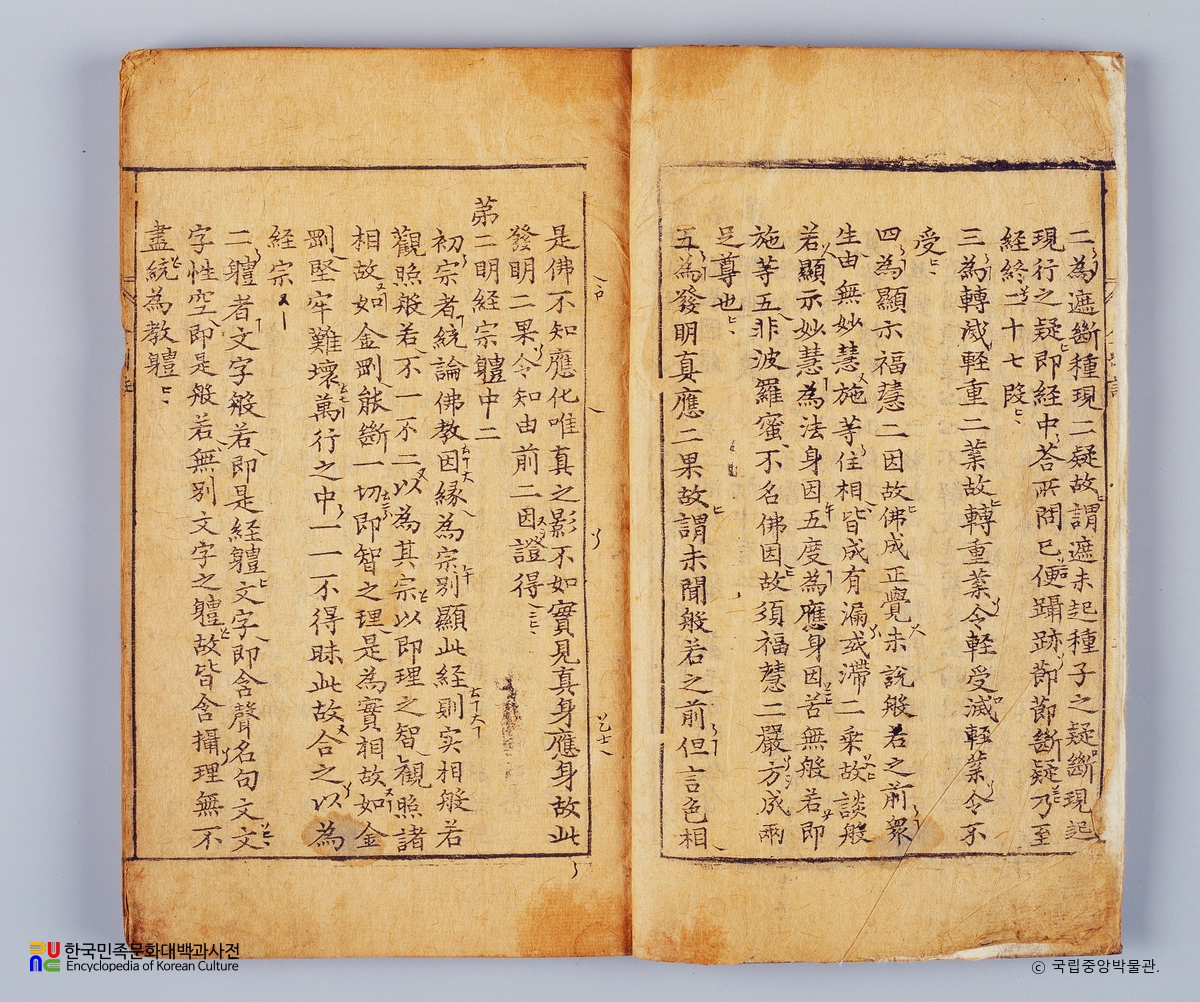 二為遮斷種現二疑故謂遮未起種子之疑斷現起
現行之疑即經中荅所問已便躡跡節節斷疑乃至
經終二十七段
三為轉滅軽重二業故轉重業令軽受滅軽業令不
受
四為顯示福慧二因故佛成正覺未說般若之前衆
生由無妙慧施等住相皆成有漏或滞二乘故談般
若顯示妙慧為法身因五度為應身因若無般若即
施等五非波羅蜜不名佛因故須福慧二嚴方成兩
足尊也
五為發明真應二果故謂未聞般若之前但言色相
是佛不知應化唯真之影不如實見真身應身故此
發明二果令知由前二因證得
第二明経宗軆中二
初宗者統論佛教因縁為宗别顯此経則实相般若
觀照般若不一不二以為其宗以即理之智觀照諸
相故如金剛能斷一切即智之理是為實相故如金
剛堅牢難壞萬行之中一一不得昧此故合之以為
経宗
二軆者文字般若即是経軆文字即含聲名句文文
字性空即是般若無别文字之軆故皆含攝理無不
盡統為教軆
한국민족문화대백과사전
Encyclopedia of Korean Culture
ⓒ 국립중앙박물관.